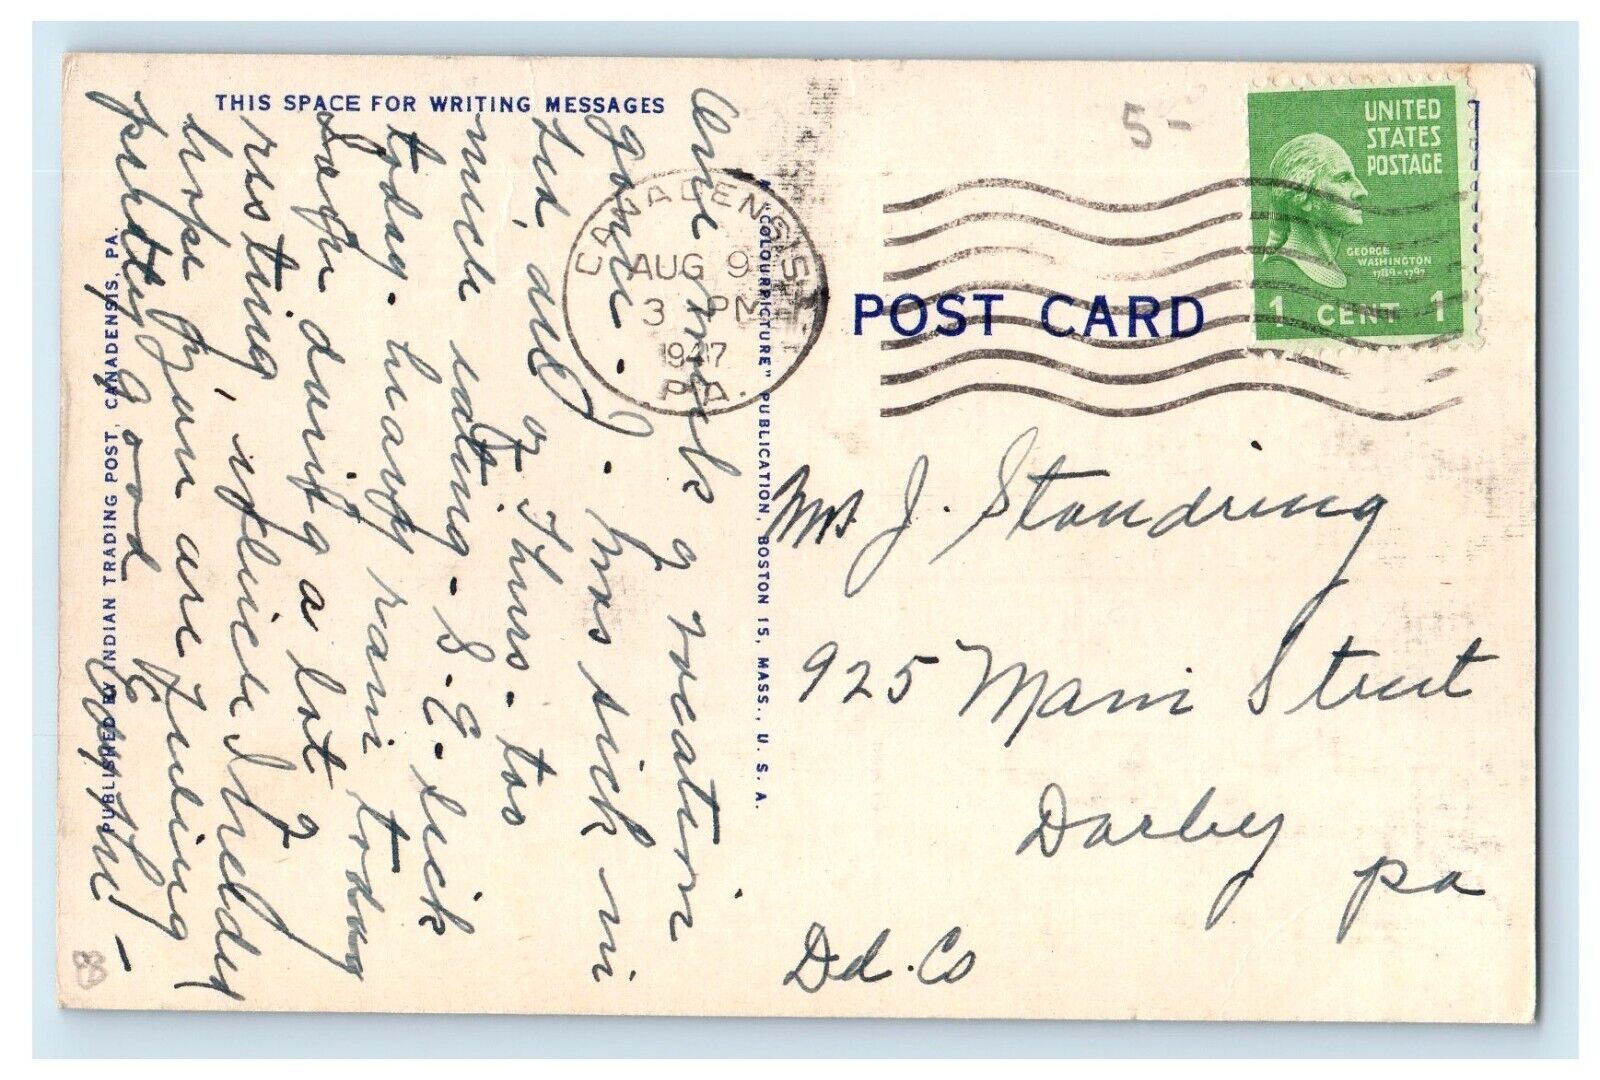 THIS SPACE FOR WRITING MESSAGES
One week of vacation
gone. J. was sick in
bed, all of Thurs. too
much eating. S. E. sick
today. heavy rain today
Sage during a lot of
resting, which I needed
hope you are feeling
pretty good
Esther
PUBLISHED BY INDIAN TRADING POST, CANADENSIS, PA.
A "COLOURPICTURE" PUBLICATION, BOSTON 15, MASS., U.S.A.
CANADENSIS
AUG 9
3 PM
1947
PA.
POST CARD
5-
UNITED
STATES
POSTAGE
GEORGE
WASHINGTON
1789-1797
1 CENT 1
Mrs J. Standring
925 Main Street
Darby
Pa
Dd. Co